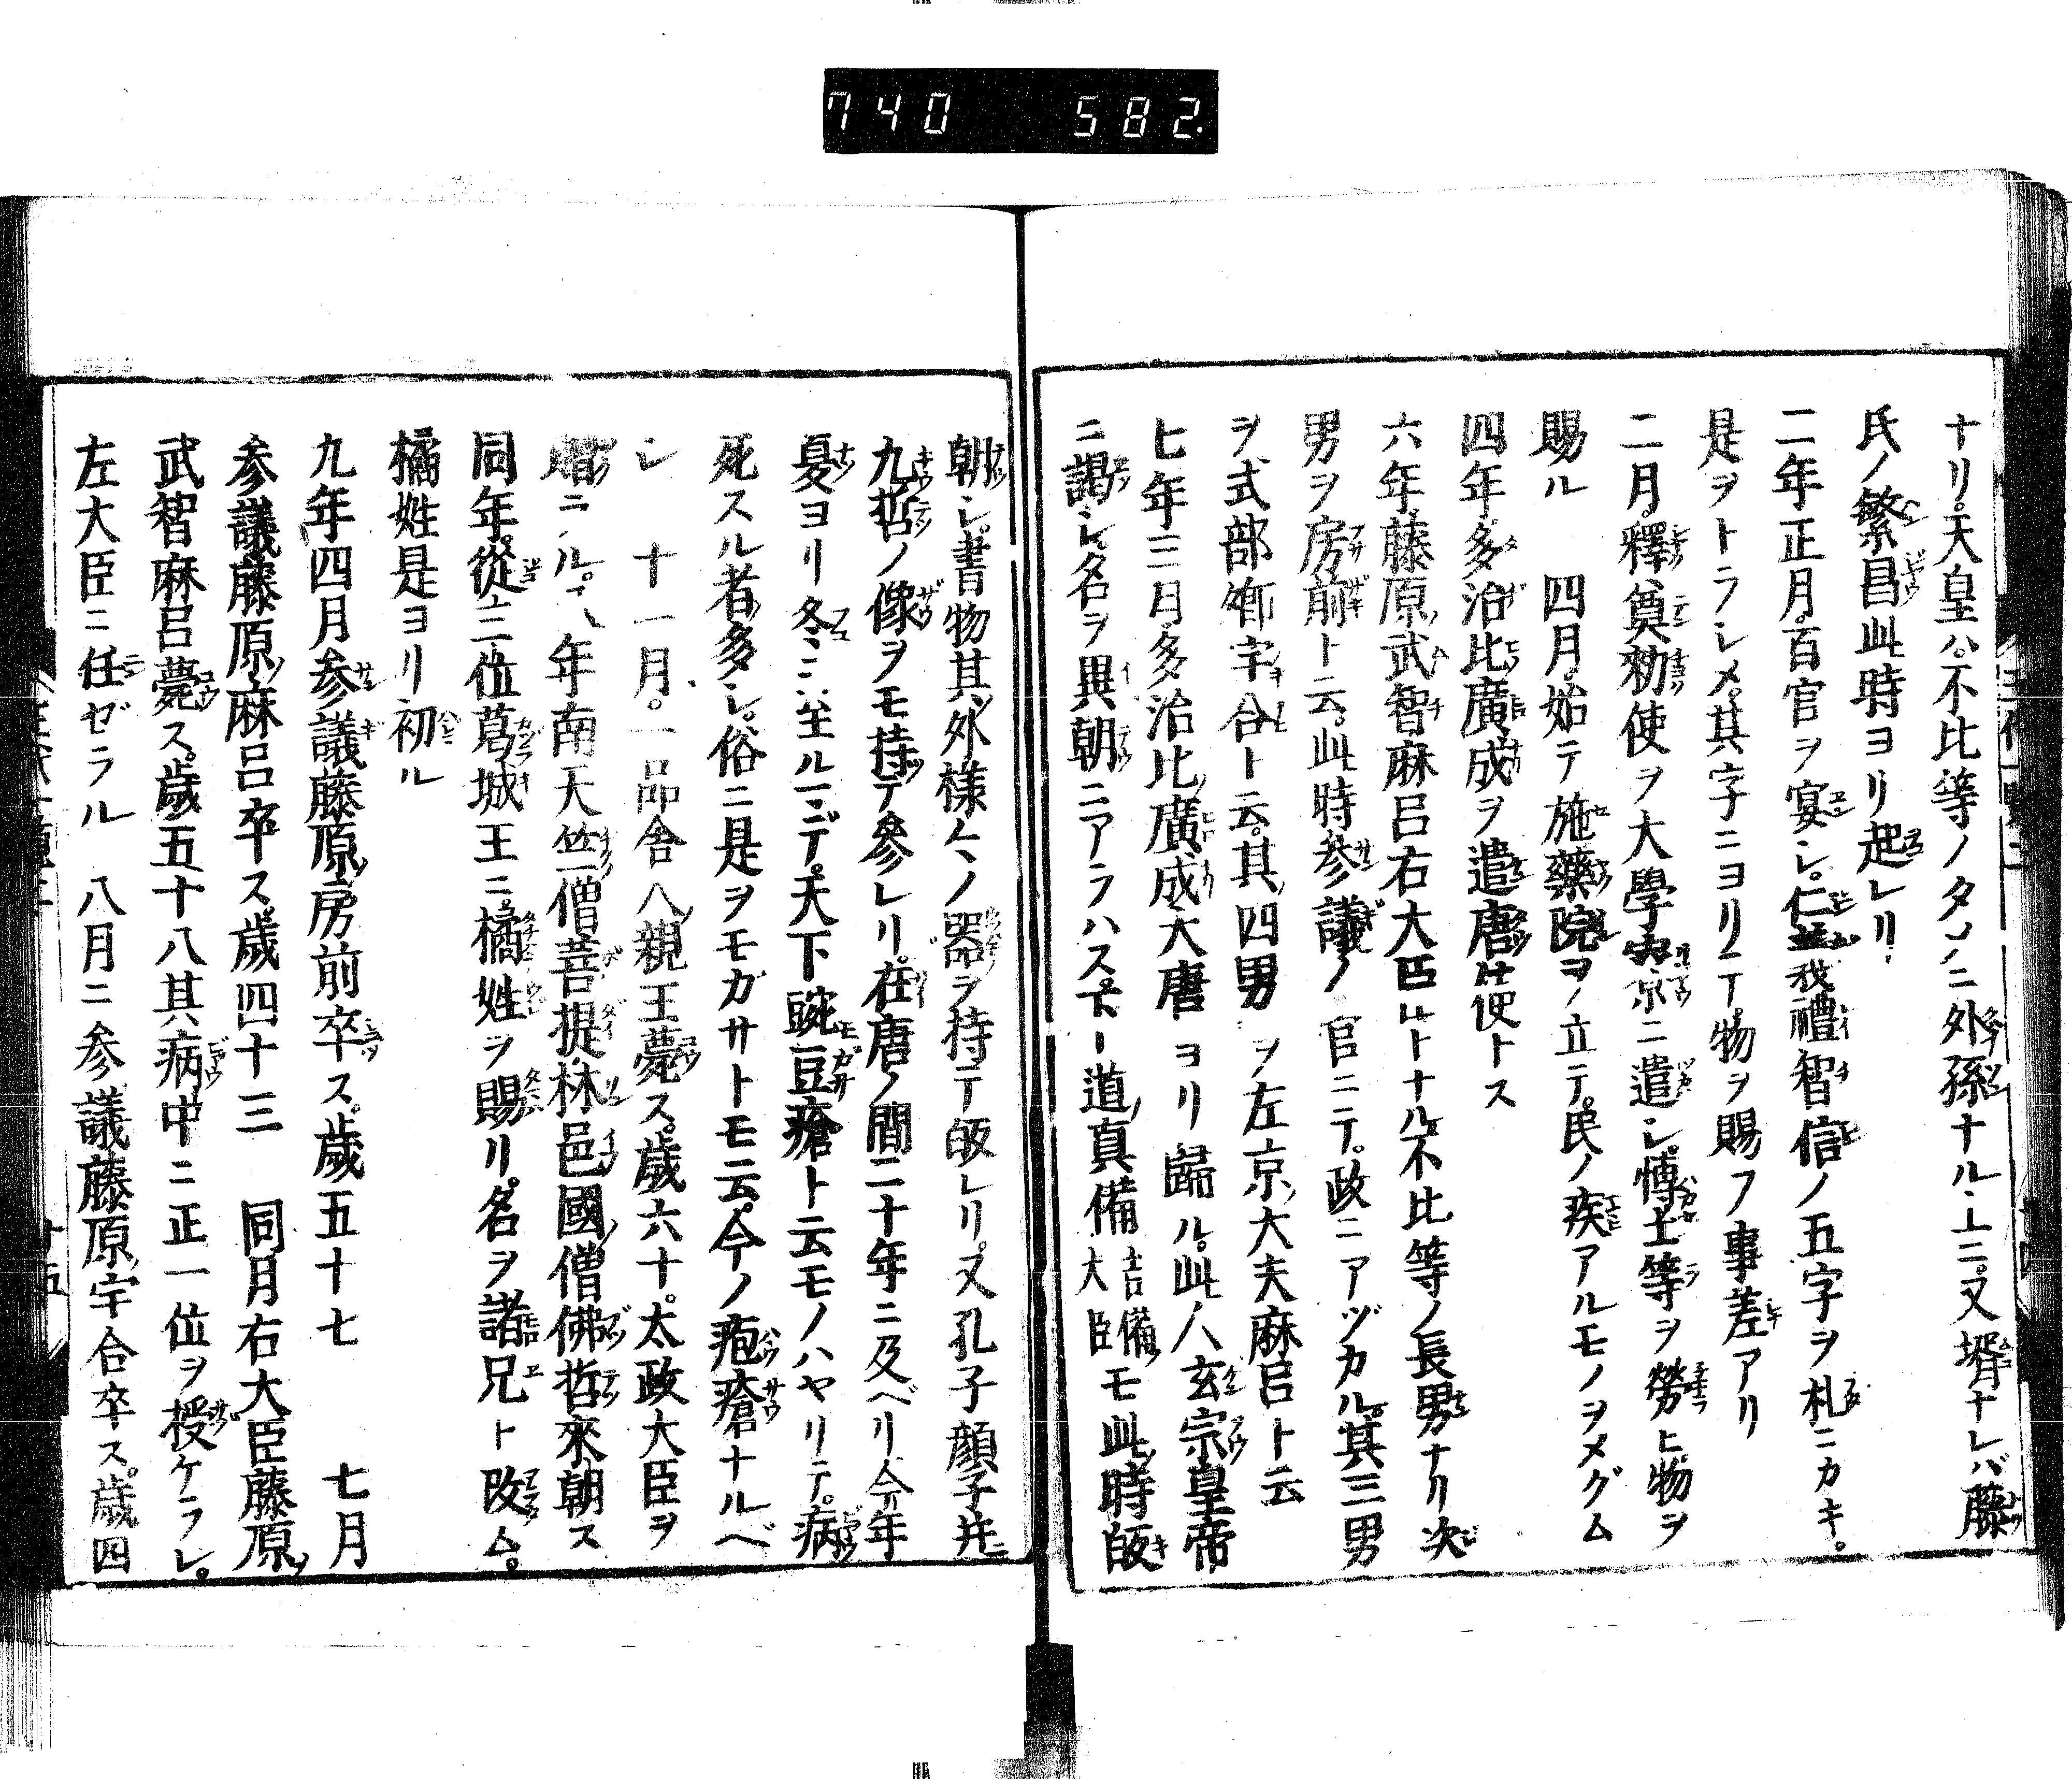 740 582.
ナリ。天皇ハ。不比等ノタメニ外孫ナル上ニ。又壻ナレバ藤
氏ノ繁昌此時ヨリ起レリ
二年正月。百官ヲ宴シ。仁義禮智信ノ五字ヲ札ニカキ。
是ヲトラシメ。其字ニヨリテ。物ヲ賜フ事差アリ
二月。釋奠。勅使ヲ大學寮ニ遣シ。博士等ヲ勞ヒ物ヲ
賜ル 四月。始テ施藥院ヲ立テ。民ノ疾アルモノヲメグム
四年。多治比廣成ヲ遣唐使トス
六年。藤原武智麻呂右大臣トナル。不比等ノ長男ナリ次
男ヲ房前ト云。此時參議ノ官ニテ。政ニアヅカル。其三男
ヲ式部卿宇合ト云。其四男ヲ左京大夫麻呂ト云
七年三月。多治比廣成大唐ヨリ歸ル。此人玄宗皇帝
ニ謁シ。名ヲ異朝ニアラハス。下道真備吉備大臣モ此時皈
朝シ。書物其外様々ノ器ヲ持テ皈レリ。又孔子顔子并
九哲ノ像ヲモ持テ參レリ。在唐ノ間二十年ニ及ベリ今年
夏ヨリ冬ニ至ルマデ。天下豌豆瘡ト云モノハヤリテ。病
死スル者多シ。俗ニ是ヲモガサトモ云。今ノ疱瘡ナルベ
シ 十一月。一品舎人親王薨ス。歳六十。太政大臣ヲ
贈ラル。八年南天竺僧菩提。林邑國僧佛哲來朝ス
同年。從三位葛城王ニ。橘姓ヲ賜リ。名ヲ諸兄ト改ム。
橘姓是ヨリ初ル
九年四月参議藤原房前卒ス。歳五十七 七月
参議藤原麻呂卒ス。歳四十三 同月右大臣藤原
武智麻呂薨ス。歳五十八其病中ニ正一位ヲ授ケラレ。
左大臣ニ任ゼラル 八月ニ参議藤原宇合卒ス。歳四